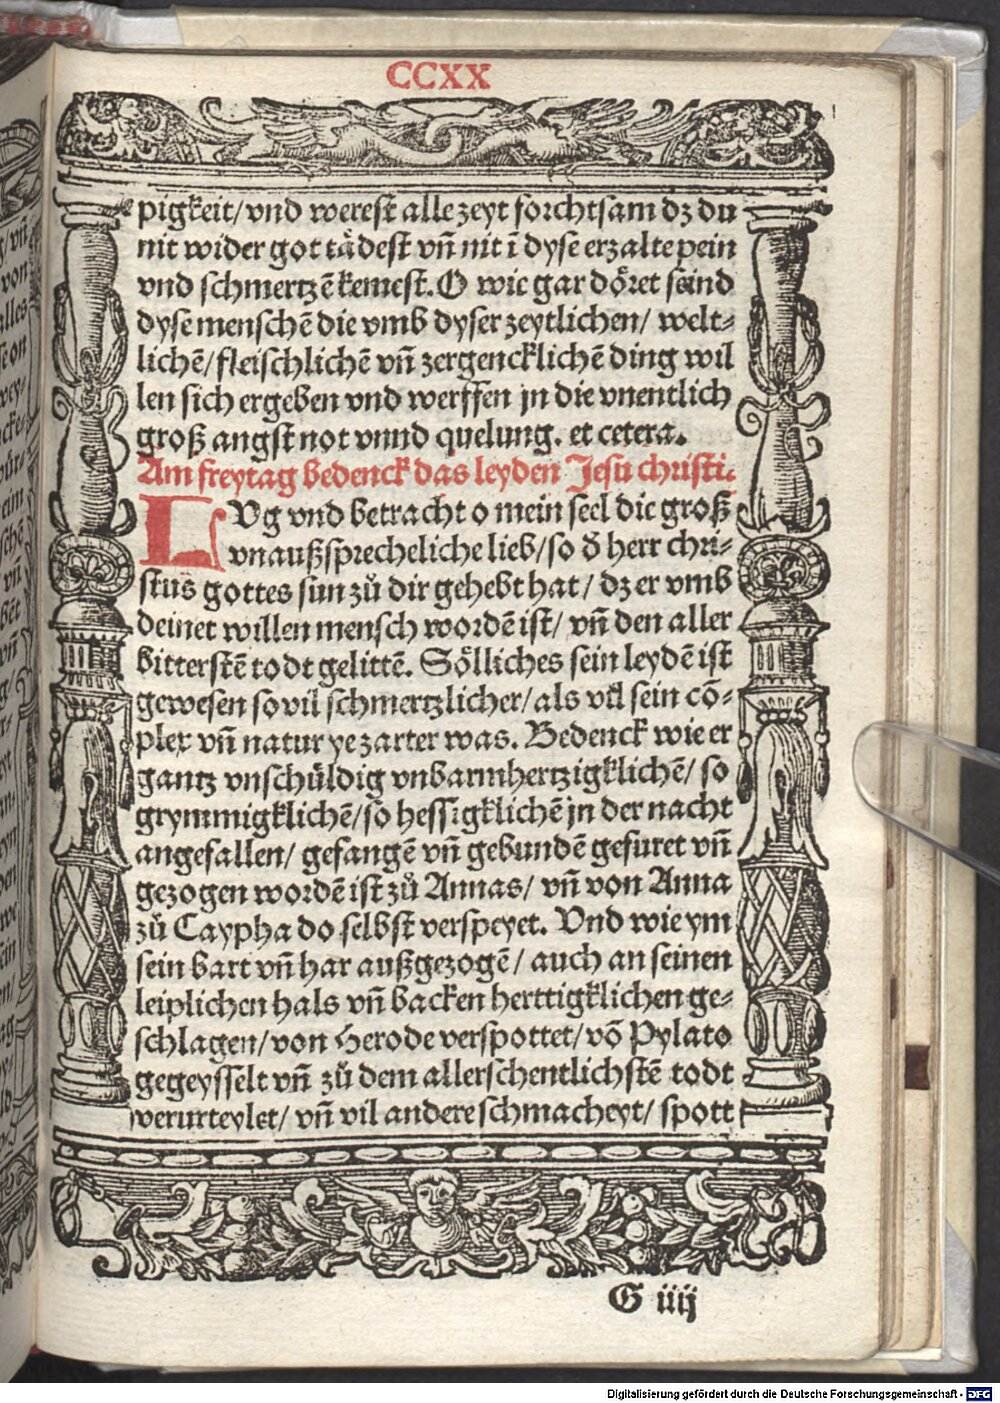 CCXX
pigkeit/ vnd werest alle zeyt forchtsam dz du
nit wider got tådest vñ nit ī dyse erzalte pein
vnd schmertzē kemest. O wie gar dőret seind
dyse menschē die vmb dyser zeytlichen/ welt⸗
lichē/ fleischlichē vñ zergencklichē ding wil
len sich ergeben vnd werffen jn die vnentlich
groß angst not vnnd quelung. et cetera.
Am freytag bedenck das leyden Jesu christi.
LVg vnd betracht o mein seel die groß
vnaußsprecheliche lieb/ so ď herr chri⸗
stus gottes sun zů dir gehebt hat/ dz er vmb
deinet willen mensch wordē ist/ vñ den aller
bitterstē todt gelittē. Sőlliches sein leydē ist
gewesen so vil schmertzlicher/ als vil sein cō⸗
plex vñ natur ye zarter was. Bedenck wie er
gantz vnschüldig vnbarmhertzigklichē/ so
grymmigklichē/ so hessigklichē jn der nacht
angefallen/ gefangē vñ gebundē gefuret vñ
gezogen wordē ist zů Annas/ vñ von Anna
zů Caypha do selbst verspeyet. Vnd wie ym
sein bart vñ har außgezogē/ auch an seinen
leiplichen hals vñ backen herttigklichen ge⸗
schlagen/ von Herode verspottet/ vō Pylato
gegeysselt vñ zů dem allerschentlichstē todt
verurteylet/ vñ vil andere schmacheyt/ spott
G iiij
Digitalisierung gefördert durch die Deutsche Forschungsgemeinschaft - DFG